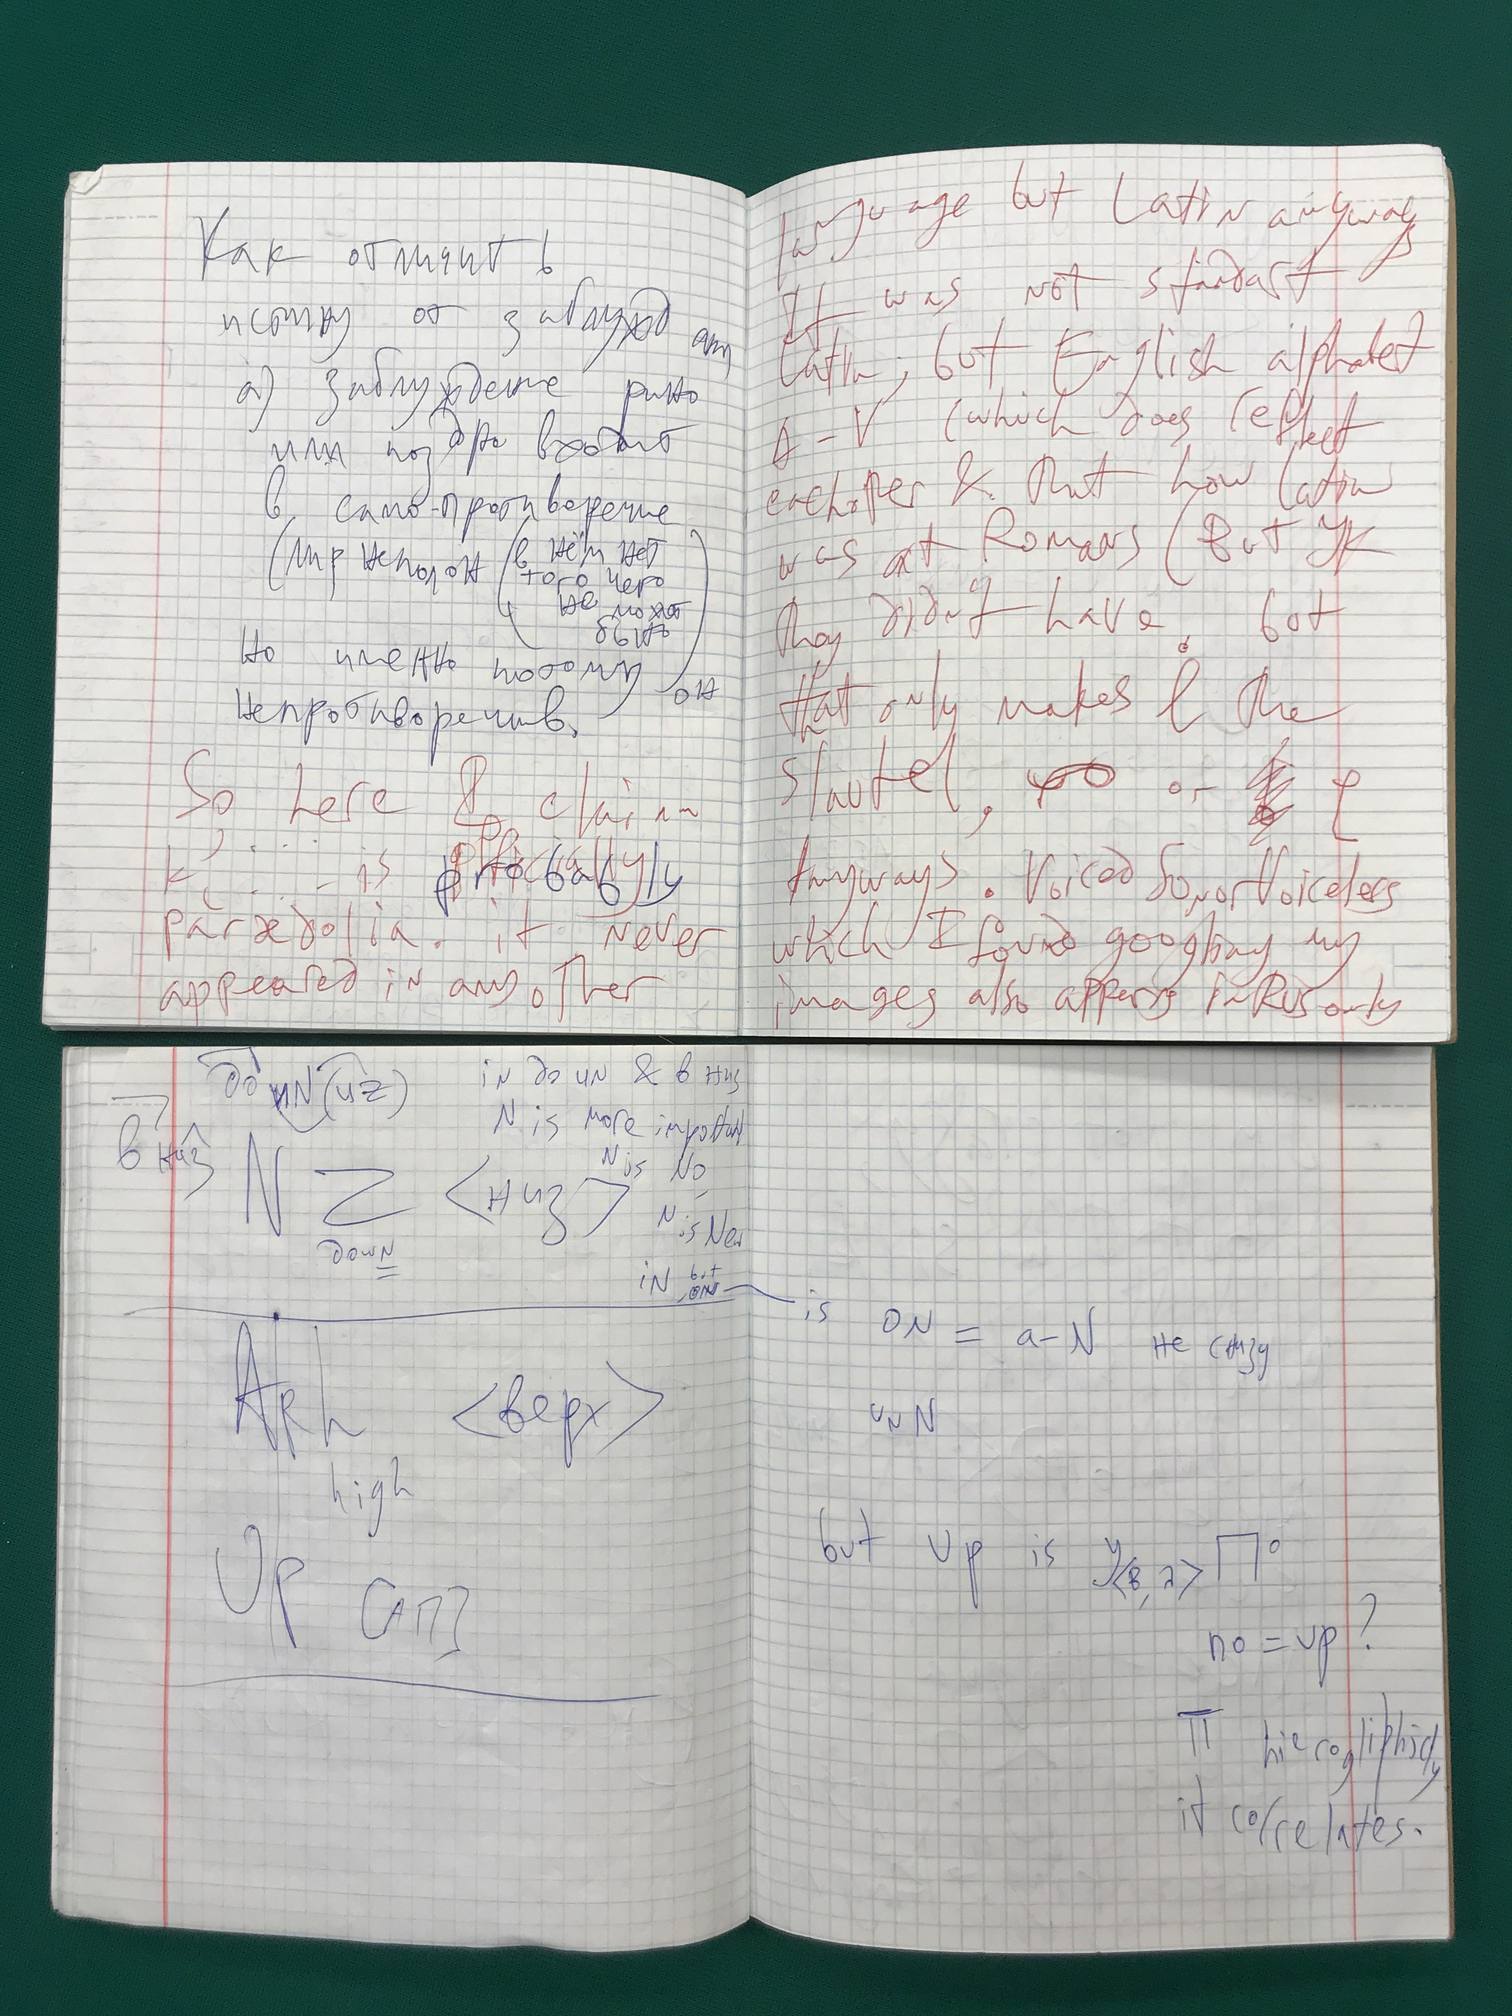 Как отличить
истину от заблуждения
а) заблуждение рано
или поздно входит
в само-противоречие
(мир неполон (в нём нет
того чего
не может
быть
но именно потому он
непротиворечив.
So here & claim
is probably
paræдolia. it never
appeared in any other
language but Latin anyway
It was not stanдart
Latin, but English alphabet
A-V (which does reflect
eachother & that how Latin
was at Romans (But YK
they didn't have. bot
that only makes the
or
Anyways. Voiced Sonor Voiceless
which I found googling my
images also appers in Rus only
доиN(иz)
в низ
N Z <низ>
дowN
iN до иN & в низ
N is more important
N is No
N is New
iN but
is ON = a-N не снизу
unN
ARh <верх>
high
Up [ап]
but up is У<в,л> П°
по = up?
П hierogliphicly
it correlates.